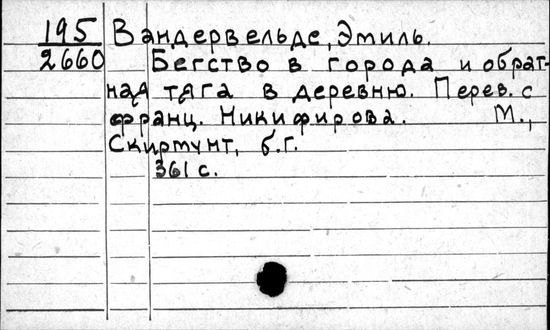 195 Вандервельде, Эмиль.
2660 Бегство в города и обрат-
ная тяга в деревню. Перев. с
франц. Никифирова. М.,
Скиртунт, б.г.
361 с.